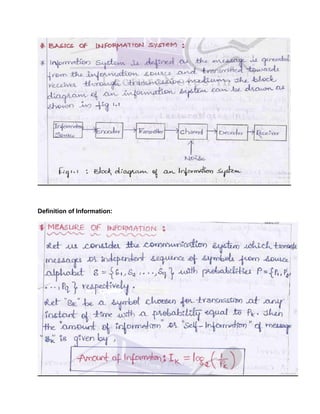 * BASICS OF INFORMATION SYSTEM :
* Information System is defined as the message is generated
from the information source and transmitted towards
receiver through transmission medium. The block
diagram of an information system can be drawn as
shown in fig 1.1
Information Source Encoder Channel Decoder Receiver
Noise
Fig 1.1 : Block diagram of an Information System
Definition of Information:
* MEASURE OF INFORMATION :
Let us consider the communication system which
messages or independent sequence of symbols from source
alphabet S = {S1, S2, ...., Sq} with probabilities P = {P1, P2,
..., Pq} respectively.
Let "SK" be a symbol choosen for transmission at any
instant of time with a probability equal to PK. Then
the "amount of information" or "Self-Information" of message
"SK" is given by,
Amount of Information : IK = log2 (1/PK)